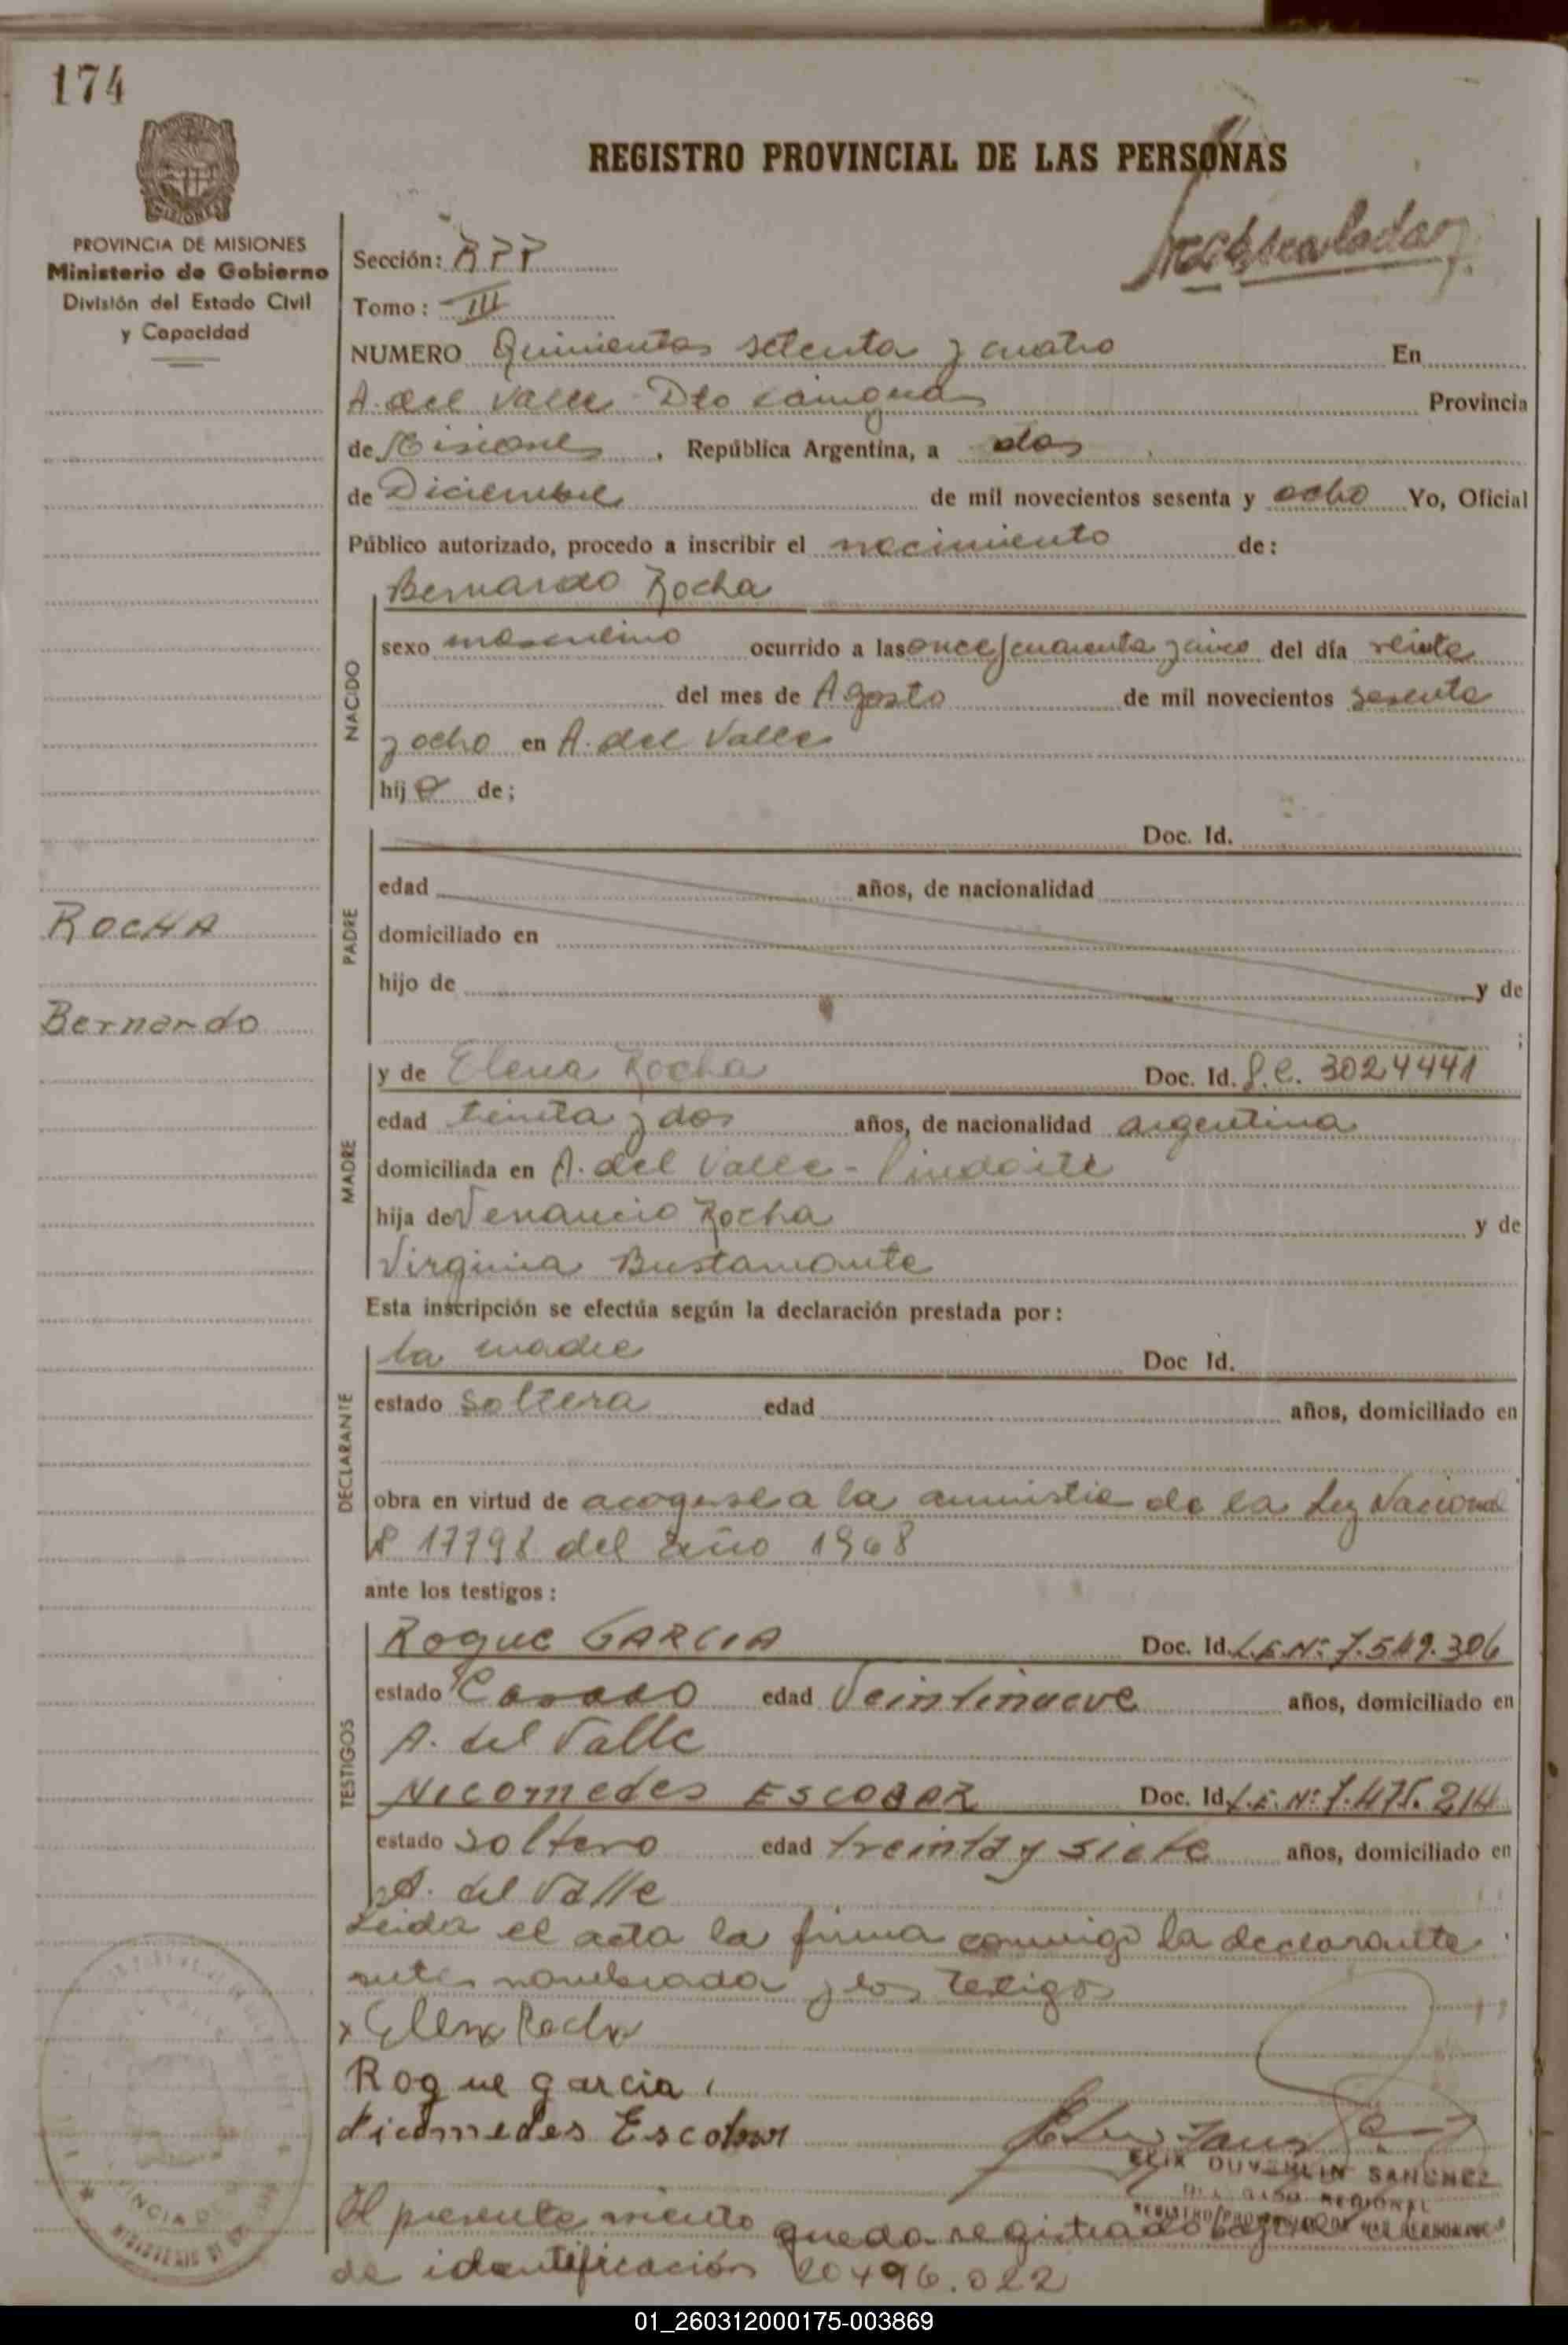 174
REGISTRO PROVINCIAL DE LAS PERSONAS
MISIONES
PROVINCIA DE MISIONES
Ministerio de Gobierno
División del Estado Civil
y Capacidad
Sección: RPP
Tomo: III
NUMERO Quinientos setenta y cuatro En
A. del Valle Dto Cainguas Provincia
de Misiones, República Argentina, a dos
de Diciembre de mil novecientos sesenta y ocho Yo, Oficial
Público autorizado, procedo a inscribir el nacimiento de:
NACIDO
Bernardo Rocha
sexo masculino ocurrido a las once/cuarenta y cinco del día veinte
del mes de Agosto de mil novecientos sesenta
y ocho en A. del Valle
hijo de;
PADRE
Doc. Id.
edad años, de nacionalidad
domiciliado en
hijo de y de
;
ROCHA
Bernardo
MADRE
y de Elena Rocha Doc. Id. L.C. 3024441
edad treinta y dos años, de nacionalidad argentina
domiciliada en A. del Valle - Pindaité
hija de Venancio Rocha y de
Virginia Bustamante
Esta inscripción se efectúa según la declaración prestada por:
DECLARANTE
la madre Doc Id.
estado soltera edad años, domiciliado en
obra en virtud de acogerse a la amnistia de la Ley Nacional
17798 del año 1968
ante los testigos:
TESTIGOS
Roque GARCIA Doc. Id. L.E.Nº 7.549.306
estado Casado edad Veintinueve años, domiciliado en
A. del Valle
Nicomedes ESCOBAR Doc. Id. L.E. Nº 7.475.214
estado soltero edad treinta y siete años, domiciliado en
A. del Valle
Leida el acta la firma conmigo la declarante
antes nombrada y los testigos
x Elena Rocha
Roque garcia
Nicomedes Escobar
FELIX DUVERLIN SANCHEZ
DELEGADO REGIONAL
El presente quedo registrado bajo
de identificación 20496.022
01_260312000175-003869